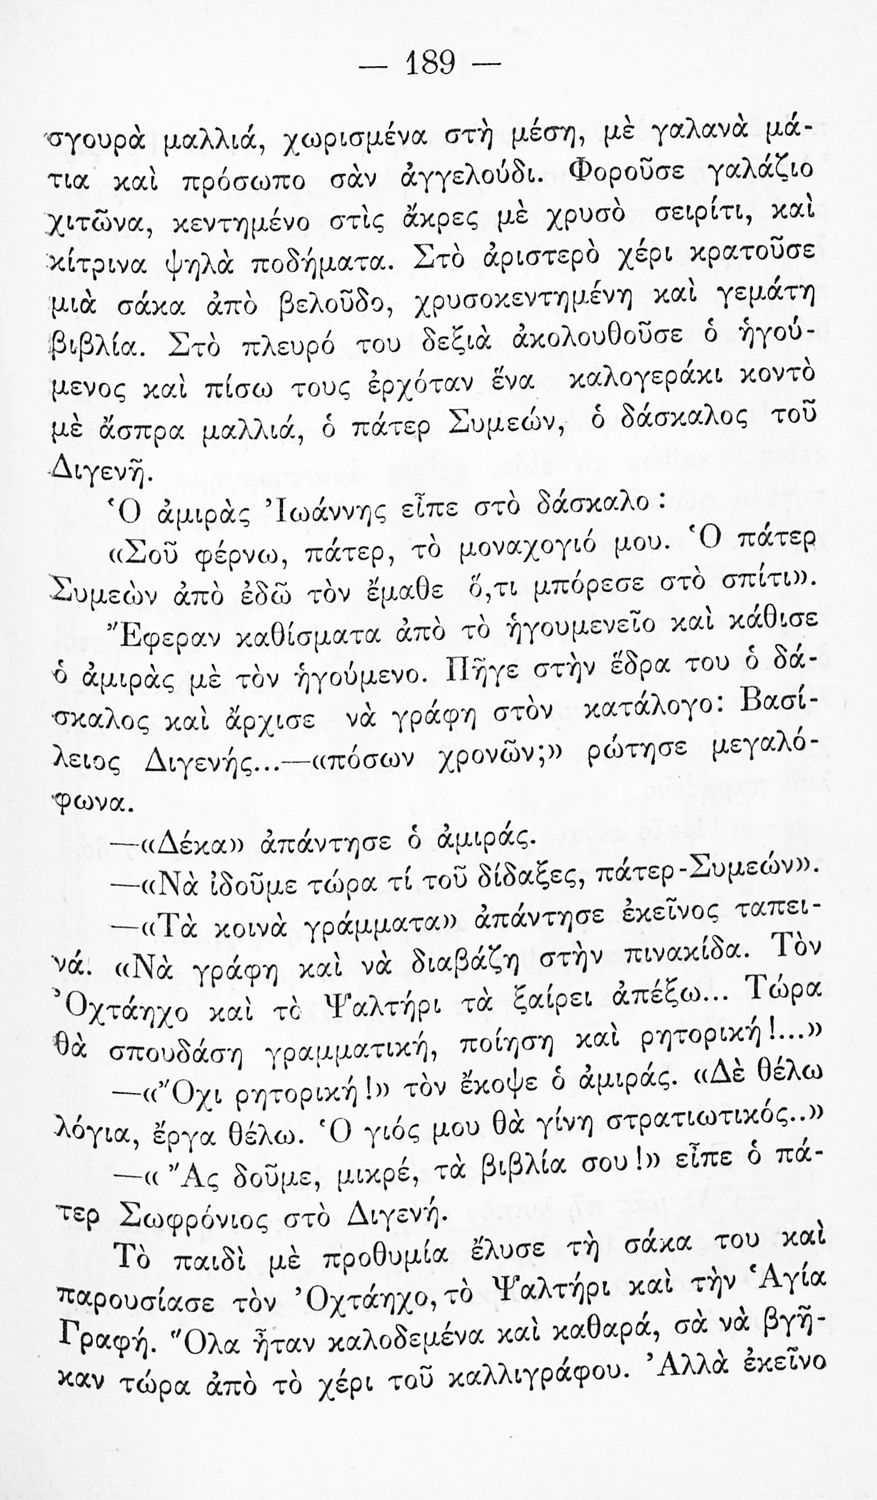 — 189 —
σγουρὰ μαλλιά, χωρισμένα στὴ μέση, μὲ γαλανὰ μά-
τια καὶ πρόσωπο σὰν ἀγγελούδι. Φοροῦσε γαλάζιο
χιτῶνα, κεντημένο στὶς ἄκρες μὲ χρυσὸ σειρίτι, καὶ
κίτρινα ψηλὰ ποδήματα. Στὸ ἀριστερὸ χέρι κρατοῦσε
μιὰ σάκα ἀπὸ βελοῦδο, χρυσοκεντημένη καὶ γεμάτη
βιβλία. Στὸ πλευρό του δεξιὰ ἀκολουθοῦσε ὁ ἡγού-
μενος καὶ πίσω τους ἐρχόταν ἕνα καλογεράκι κοντὸ
μὲ ἄσπρα μαλλιά, ὁ πάτερ Συμεών, ὁ δάσκαλος τοῦ
Διγενῆ.
Ὁ ἀμιρὰς Ἰωάννης εἶπε στὸ δάσκαλο :
«Σοῦ φέρνω, πάτερ, τὸ μοναχογιό μου. Ὁ πάτερ
Συμεὼν ἀπὸ ἐδῶ τὸν ἔμαθε ὅ,τι μπόρεσε στὸ σπίτι».
Ἔφεραν καθίσματα ἀπὸ τὸ ἡγουμενεῖο καὶ κάθισε
ὁ ἀμιρὰς μὲ τὸν ἡγούμενο. Πῆγε στὴν ἕδρα του ὁ δά-
σκαλος καὶ ἄρχισε νὰ γράφη στὸν κατάλογο: Βασί-
λειος Διγενής...—«πόσων χρονῶν;» ρώτησε μεγαλό-
φωνα.
—«Δέκα» ἀπάντησε ὁ ἀμιράς.
—«Νὰ ἰδοῦμε τώρα τί τοῦ δίδαξες, πάτερ-Συμεών».
—«Τὰ κοινὰ γράμματα» ἀπάντησε ἐκεῖνος ταπει-
νά. «Νὰ γράφη καὶ νὰ διαβάζη στὴν πινακίδα. Τὸν
Ὀχτάηχο καὶ τὸ Ψαλτήρι τὰ ξαίρει ἀπέξω... Τώρα
θὰ σπουδάση γραμματική, ποίηση καὶ ρητορική!...»
—«Ὄχι ρητορική!» τὸν ἔκοψε ὁ ἀμιράς. «Δὲ θέλω
λόγια, ἔργα θέλω. Ὁ γιός μου θὰ γίνη στρατιωτικός..»
—« Ἂς δοῦμε, μικρέ, τὰ βιβλία σου!» εἶπε ὁ πά-
τερ Σωφρόνιος στὸ Διγενή.
Τὸ παιδὶ μὲ προθυμία ἔλυσε τὴ σάκα του καὶ
παρουσίασε τὸν Ὀχτάηχο, τὸ Ψαλτήρι καὶ τὴν Ἁγία
Γραφή. Ὅλα ἦταν καλοδεμένα καὶ καθαρά, σὰ νὰ βγῆ-
καν τώρα ἀπὸ τὸ χέρι τοῦ καλλιγράφου. Ἀλλὰ ἐκεῖνο